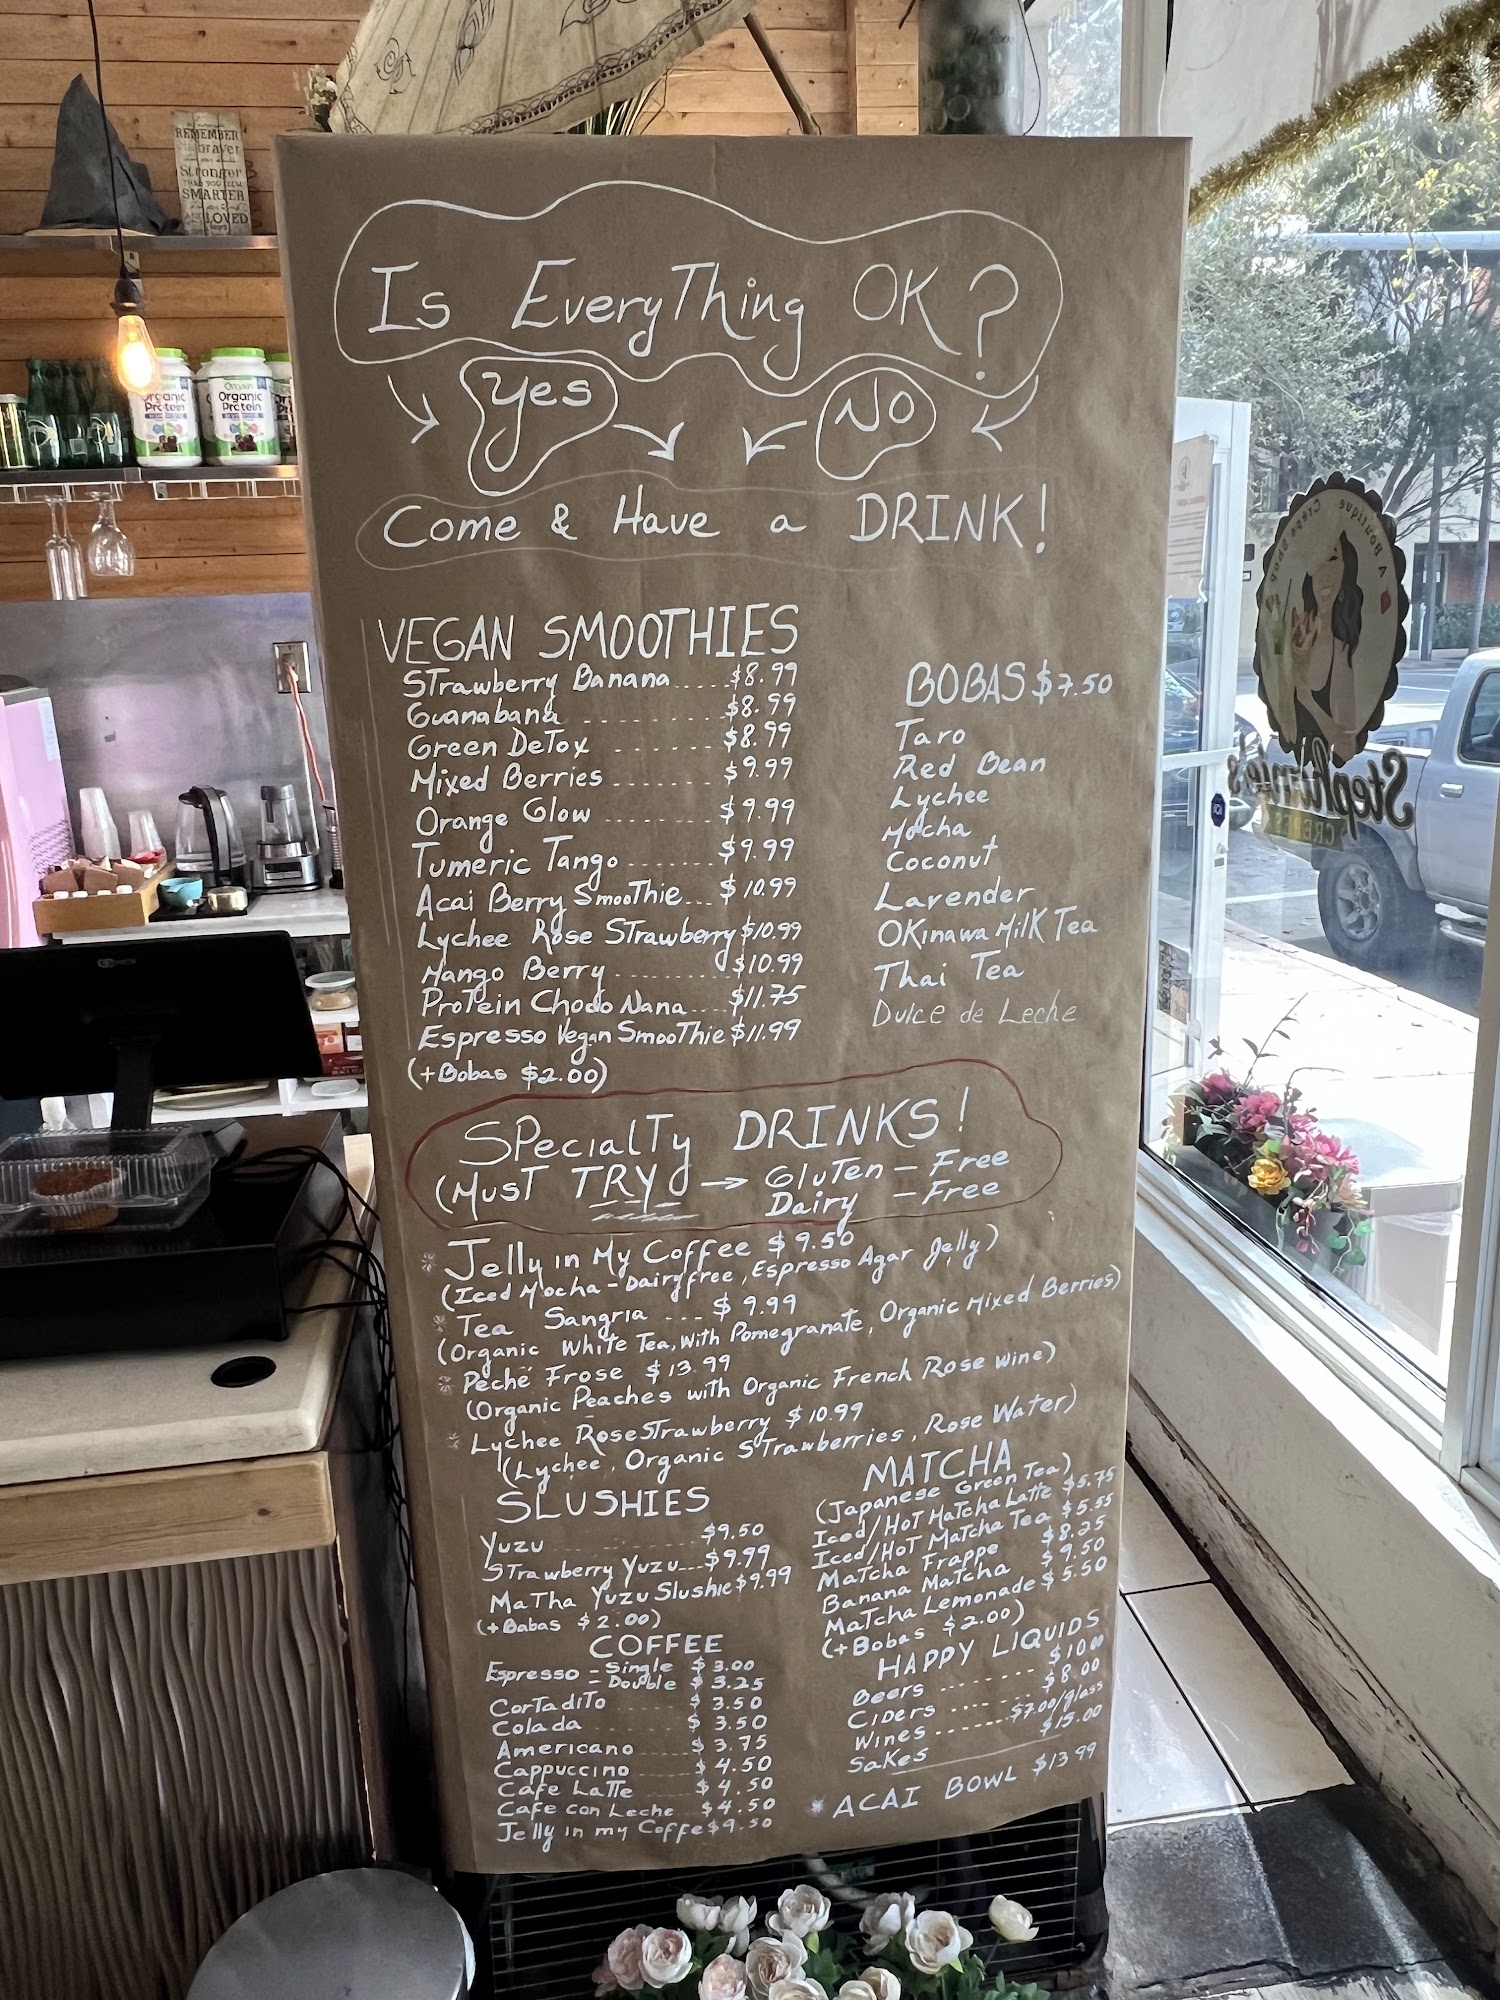 REMEMBER
Braver
Stronger
SMARTER
LOVED
Orgain
Organic
Protein
Orgain
Organic
Protein
Is EveryThing OK?
Yes
No
Come & Have a DRINK!
VEGAN SMOOTHIES
STrawberry Banana.....$8.99
Guanabana ......... $8.99
Green DeTox ....... $8.99
Mixed Berries ....... $9.99
Orange Glow ........ $9.99
Tumeric Tango ....... $9.99
Acai Berry SmooThie... $10.99
Lychee Rose STrawberry $10.99
Mango Berry ......... $10.99
ProTein Choco Nana.... $11.75
Espresso Vegan SmooThie $11.99
(+Bobas $2.00)
BOBAS $7.50
Taro
Red Bean
Lychee
Mocha
Coconut
Lavender
OKinawa MilK Tea
Thai Tea
Dulce de Leche
SPecialTy DRINKS!
(MusT TRY → GluTen - Free
Dairy - Free
* Jelly in My Coffee $9.50
(Iced Mocha - Dairyfree, Espresso Agar Jelly)
* Tea Sangria ... $9.99
(Organic WhiTe Tea, with Pomegranate, Organic Mixed Berries)
* Peche Frose $13.99
(Organic Peaches with Organic French Rose wine)
* Lychee Rose STrawberry $10.99
(Lychee, Organic STrawberries, Rose Water)
SLUSHIES
Yuzu ........ $9.50
STrawberry Yuzu...$9.99
MaTha Yuzu Slushie $9.99
(+Babas $2.00)
COFFEE
Espresso - Single $3.00
- Double $3.25
CorTadiTo ....... $3.50
Colada ....... $3.50
Americano ..... $3.75
Cappuccino ..... $4.50
Cafe LaTTe ..... $4.50
Cafe con Leche ... $4.50
Jelly in my Coffe $9.50
MATCHA
(Japanese Green Tea)
Iced/HoT MaTcha LaTTe $5.75
Iced/HoT MaTcha Tea $5.55
MaTcha Frappe $8.25
Banana MaTcha $9.50
MaTcha Lemonade $5.50
(+Bobas $2.00)
HAPPY LIQUIDS
Beers ....... $10.00
CIDers ....... $8.00
Wines ....... $7.00/glass
Sakes $15.00
* ACAI BOWL $13.99
A Boutique Crepe Shop
Stephanie's
CREPES